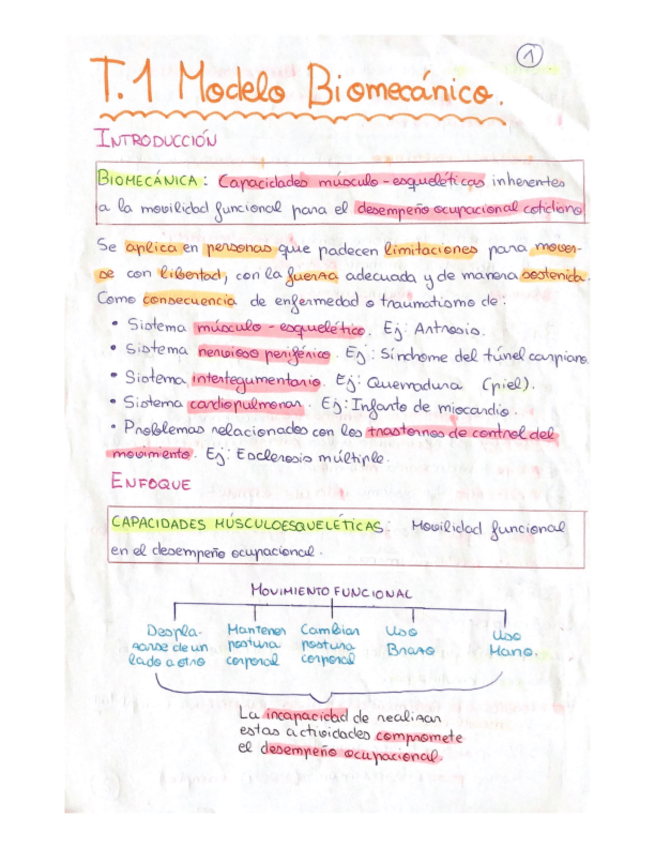 1
T.1 Modelo Biomecánico.
INTRODUCCIÓN
BIOMECÁNICA: Capacidades músculo-esqueléticas inherentes
a la movilidad funcional para el desempeño ocupacional cotidiano
Se aplica en personas que padecen limitaciones para mover-
se con libertad, con la fuerza adecuada y de manera sostenida.
Como consecuencia de enfermedad o traumatismo de:
• Sistema músculo-esquelético. Ej: Artrosis.
• Sistema nervioso periférico. Ej: Síndrome del túnel carpiano.
• Sistema intertegumentario. Ej: Quemadura (piel).
• Sistema cardiopulmonar. Ej: Infarto de miocardio.
• Problemas relacionados con los trastornos de control del
movimiento. Ej: Esclerosis múltiple.
ENFOQUE
CAPACIDADES MÚSCULOESQUELÉTICAS: Movilidad funcional
en el desempeño ocupacional.
MOVIMIENTO FUNCIONAL
Despla-
zarse de un
lado a otro
Mantener
postura
corporal
Cambiar
postura
corporal
Uso
Brazo
Uso
Mano.
La incapacidad de realizar
estas actividades compromete
el desempeño ocupacional.